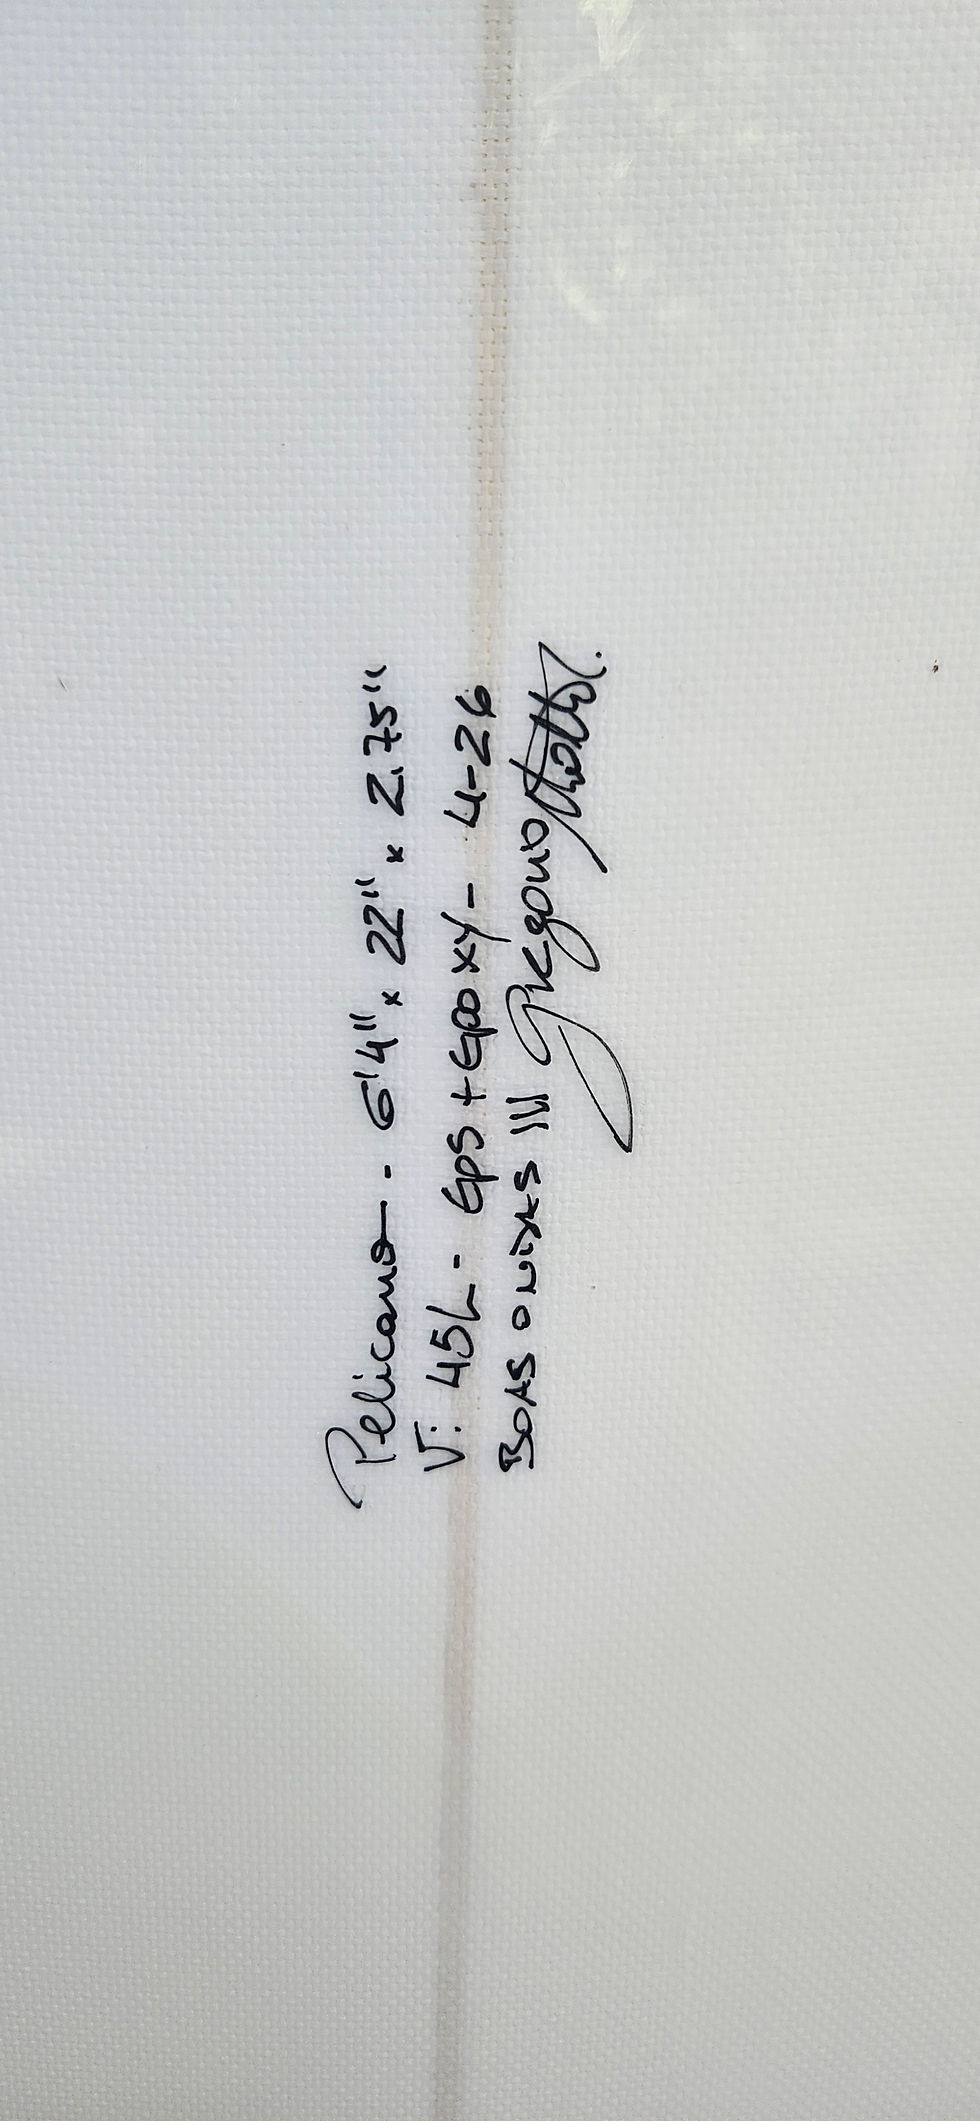 Pelicano - 6'4" x 22" x 2.75"
V: 45L - EPS + EPOXY - 4-26
BOAS ONDAS !!!